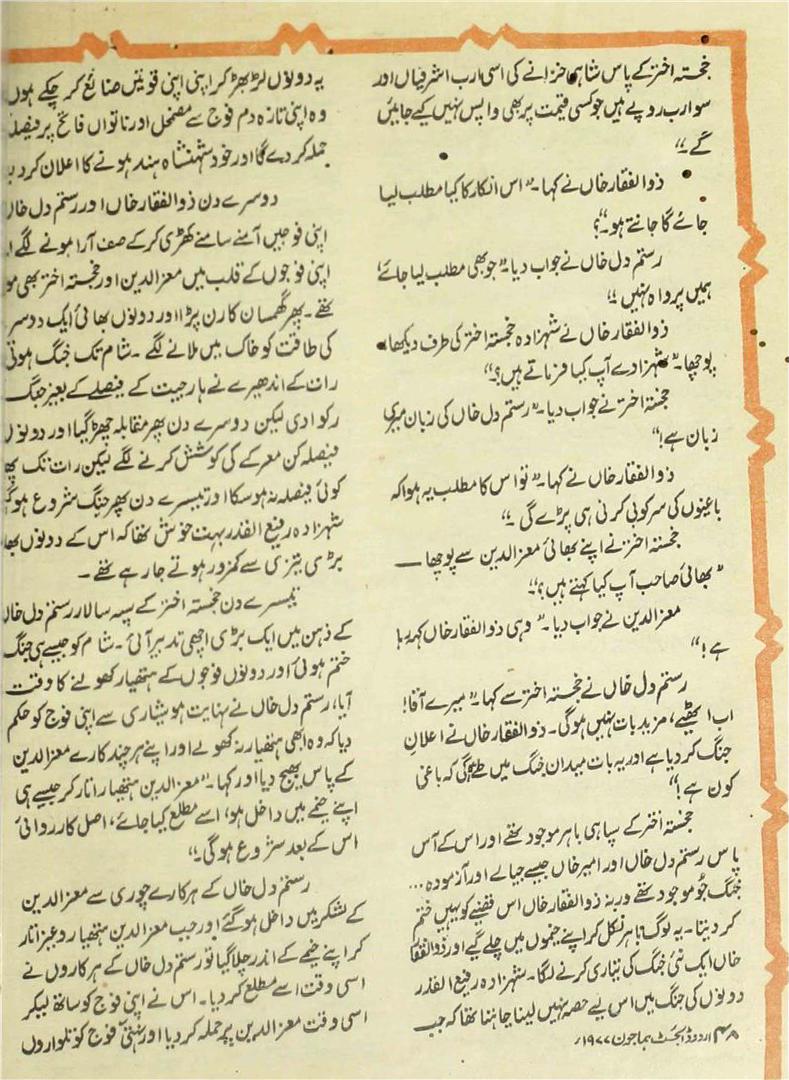 خجستہ اختر کے پاس شاہی خزانے کی اسی ارب اشرفیاں اور
سو ارب روپے ہیں جو کسی قیمت پر بھی واپس نہیں کیے جائیں
گے۔"
ذوالفقار خاں نے کہا۔ "اس انکار کا کیا مطلب لیا
جائے گا جانتے ہو۔"؟
رستم دل خاں نے جواب دیا۔ "جو بھی مطلب لیا جائے!
ہمیں پرواہ نہیں!"
ذوالفقار خاں نے شہزادہ خجستہ اختر کی طرف دیکھا،
پوچھا۔ "شہزادے آپ کیا فرماتے ہیں؟"
خجستہ اختر نے جواب دیا۔ "رستم دل خاں کی زبان میری
زبان ہے!"
ذوالفقار خاں نے کہا۔ "تو اس کا مطلب یہ ہوا کہ
باغیوں کی سرکوبی کرنی ہی پڑے گی۔"
خجستہ اختر نے اپنے بھائی معزالدین سے پوچھا —
"بھائی صاحب آپ کیا کہتے ہیں؟"
معزالدین نے جواب دیا۔ "وہی ذوالفقار خاں کہہ رہا
ہے!"
رستم دل خاں نے خجستہ اختر سے کہا۔ "میرے آقا!
اب اٹھیئے، مزید بات نہیں ہوگی۔ ذوالفقار خاں نے اعلانِ
جنگ کر دیا ہے اور یہ بات میدان جنگ میں طے ہوگی کہ باغی
کون ہے!"
خجستہ اختر کے سپاہی باہر موجود تھے اور اس کے آس
پاس رستم دل خاں اور امیر خاں جیسے جیالے اور آزمودہ ...
جنگ جُو موجود تھے ورنہ ذوالفقار خاں اس قضیے کو یہیں ختم
کر دیتا۔ یہ لوگ باہر نکل کر اپنے خیموں میں چلے گیے اور ذوالفقار
خاں ایک نئی جنگ کی تیاری کرنے لگا۔ شہزادہ رفیع القدر
دونوں کی جنگ میں اس لیے حصہ نہیں لینا چاہتا تھا کہ جب
۴۸ اردو ڈائجسٹ ہما جون ۱۹۷۷ء
یہ دونوں لڑ بھڑ کر اپنی اپنی قوتیں ضائع کر چکے ہوں
وہ اپنی تازہ دم فوج سے مضمحل اور ناتواں فاتح پر فیصلہ
حملہ کر دے گا اور خود شہنشاہ ہند ہونے کا اعلان کر دے
دوسرے دن ذوالفقار خاں اور رستم دل خاں
اپنی فوجیں آمنے سامنے کھڑی کر کے صف آرا ہونے لگے
اپنی فوجوں کے قلب میں معزالدین اور خجستہ اختر بھی مو
تھے۔ پھر گھمسان کا رن پڑا اور دونوں بھائی ایک دوسر
کی طاقت کو خاک میں ملانے لگے۔ شام تک جنگ ہوتی
رات کے اندھیرے نے ہار جیت کے فیصلے کے بغیر جنگ
رکوا دی لیکن دوسرے دن پھر مقابلہ چھڑ گیا اور دونوں
فیصلہ کن معرکے کی کوشش کرنے لگے لیکن رات تک پھ
کوئی فیصلہ نہ ہو سکا اور تیسرے دن پھر جنگ شروع ہوگ
شہزادہ رفیع القدر بہت خوش تھا کہ اس کے دونوں بھا
بڑی تیزی سے کمزور ہوتے جا رہے تھے۔
تیسرے دن خجستہ اختر کے سپہ سالار رستم دل خاں
کے ذہن میں ایک بڑی اچھی تدبیر آئی۔ شام کو جیسے ہی جنگ
ختم ہوئی اور دونوں فوجوں کے ہتھیار کھولنے کا وقت
آیا، رستم دل خاں نے نہایت ہوشیاری سے اپنی فوج کو حکم
دیا کہ وہ ابھی ہتھیار نہ کھولے اور اپنے ہر چند کارے معزالدین
کے پاس بھیج دیا اور کہا۔ "معزالدین ہتھیار اتار کر جیسے ہی
اپنے خیمے میں داخل ہو، اسے مطلع کیا جائے، اصل کارروائی
اس کے بعد شروع ہوگی۔"
رستم دل خاں کے ہرکارے چوری سے معزالدین
کے لشکر میں داخل ہو گئے اور جب معزالدین ہتھیار وغیرہ اتار
کر اپنے خیمے کے اندر چلا گیا تو رستم دل خاں کے ہرکاروں نے
اسی وقت اسے مطلع کر دیا۔ اس نے اپنی فوج کو ساتھ لیکر
اسی وقت معزالدین پر حملہ کر دیا اور نہتی فوج کو تلواروں